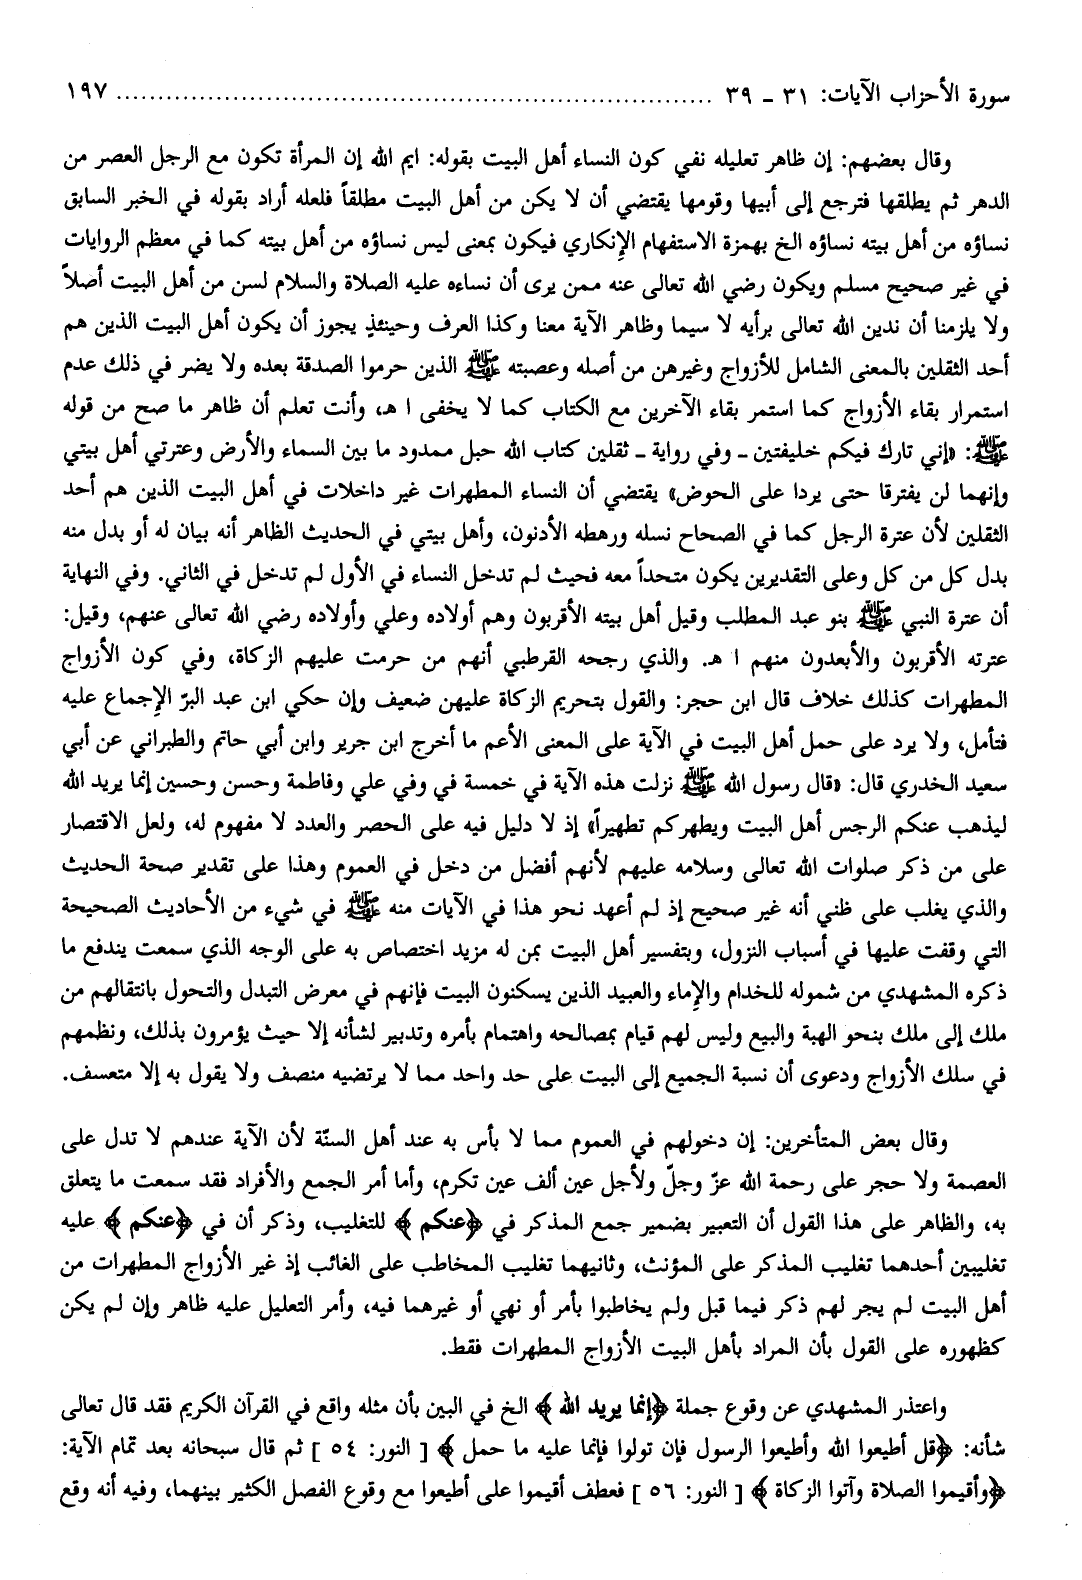 سورة الأحزاب الآيات: ٣١ - ٣٩ ........................................................................ ١٩٧
وقال بعضهم: إن ظاهر تعليله نفي كون النساء أهل البيت بقوله: ايم الله إن المرأة تكون مع الرجل العصر من
الدهر ثم يطلقها فترجع إلى أبيها وقومها يقتضي أن لا يكن من أهل البيت مطلقاً فلعله أراد بقوله في الخبر السابق
نساؤه من أهل بيته نساؤه الخ بهمزة الاستفهام الإنكاري فيكون بمعنى ليس نساؤه من أهل بيته كما في معظم الروايات
في غير صحيح مسلم ويكون رضي الله تعالى عنه ممن يرى أن نساءه عليه الصلاة والسلام لسن من أهل البيت أصلاً
ولا يلزمنا أن ندين الله تعالى برأيه لا سيما وظاهر الآية معنا وكذا العرف وحينئذٍ يجوز أن يكون أهل البيت الذين هم
أحد الثقلين بالمعنى الشامل للأزواج وغيرهن من أصله وعصبته ﷺ الذين حرموا الصدقة بعده ولا يضر في ذلك عدم
استمرار بقاء الأزواج كما استمر بقاء الآخرين مع الكتاب كما لا يخفى ا هـ، وأنت تعلم أن ظاهر ما صح من قوله
ﷺ: «إني تارك فيكم خليفتين ـ وفي رواية ـ ثقلين كتاب الله حبل ممدود ما بين السماء والأرض وعترتي أهل بيتي
وإنهما لن يفترقا حتى يردا على الحوض» يقتضي أن النساء المطهرات غير داخلات في أهل البيت الذين هم أحد
الثقلين لأن عترة الرجل كما في الصحاح نسله ورهطه الأدنون، وأهل بيتي في الحديث الظاهر أنه بيان له أو بدل منه
بدل كل من كل وعلى التقديرين يكون متحداً معه فحيث لم تدخل النساء في الأول لم تدخل في الثاني. وفي النهاية
أن عترة النبي ﷺ بنو عبد المطلب وقيل أهل بيته الأقربون وهم أولاده وعلي وأولاده رضي الله تعالى عنهم، وقيل:
عترته الأقربون والأبعدون منهم ا هـ. والذي رجحه القرطبي أنهم من حرمت عليهم الزكاة، وفي كون الأزواج
المطهرات كذلك خلاف قال ابن حجر: والقول بتحريم الزكاة عليهن ضعيف وإن حكي ابن عبد البرّ الإجماع عليه
فتأمل، ولا يرد على حمل أهل البيت في الآية على المعنى الأعم ما أخرج ابن جرير وابن أبي حاتم والطبراني عن أبي
سعيد الخدري قال: «قال رسول الله ﷺ نزلت هذه الآية في خمسة في وفي علي وفاطمة وحسن وحسين إنما يريد الله
ليذهب عنكم الرجس أهل البيت ويطهركم تطهيراً» إذ لا دليل فيه على الحصر والعدد لا مفهوم له، ولعل الاقتصار
على من ذكر صلوات الله تعالى وسلامه عليهم لأنهم أفضل من دخل في العموم وهذا على تقدير صحة الحديث
والذي يغلب على ظني أنه غير صحيح إذ لم أعهد نحو هذا في الآيات منه ﷺ في شيء من الأحاديث الصحيحة
التي وقفت عليها في أسباب النزول، وبتفسير أهل البيت بمن له مزيد اختصاص به على الوجه الذي سمعت يندفع ما
ذكره المشهدي من شموله للخدام والإماء والعبيد الذين يسكنون البيت فإنهم في معرض التبدل والتحول بانتقالهم من
ملك إلى ملك بنحو الهبة والبيع وليس لهم قيام بمصالحه واهتمام بأمره وتدبير لشأنه إلا حيث يؤمرون بذلك، ونظمهم
في سلك الأزواج ودعوى أن نسبة الجميع إلى البيت على حد واحد مما لا يرتضيه منصف ولا يقول به إلا متعسف.
وقال بعض المتأخرين: إن دخولهم في العموم مما لا بأس به عند أهل السنّة لأن الآية عندهم لا تدل على
العصمة ولا حجر على رحمة الله عزّ وجلّ ولأجل عين ألف عين تكرم، وأما أمر الجمع والأفراد فقد سمعت ما يتعلق
به، والظاهر على هذا القول أن التعبير بضمير جمع المذكر في ﴿عنكم﴾ للتغليب، وذكر أن في ﴿عنكم﴾ عليه
تغليبين أحدهما تغليب المذكر على المؤنث، وثانيهما تغليب المخاطب على الغائب إذ غير الأزواج المطهرات من
أهل البيت لم يجر لهم ذكر فيما قبل ولم يخاطبوا بأمر أو نهي أو غيرهما فيه، وأمر التعليل عليه ظاهر وإن لم يكن
كظهوره على القول بأن المراد بأهل البيت الأزواج المطهرات فقط.
واعتذر المشهدي عن وقوع جملة ﴿إنما يريد الله﴾ الخ في البين بأن مثله واقع في القرآن الكريم فقد قال تعالى
شأنه: ﴿قل أطيعوا الله وأطيعوا الرسول فإن تولوا فإنما عليه ما حمل﴾ [ النور: ٥٤ ] ثم قال سبحانه بعد تمام الآية:
﴿وأقيموا الصلاة وآتوا الزكاة﴾ [ النور: ٥٦ ] فعطف أقيموا على أطيعوا مع وقوع الفصل الكثير بينهما، وفيه أنه وقع